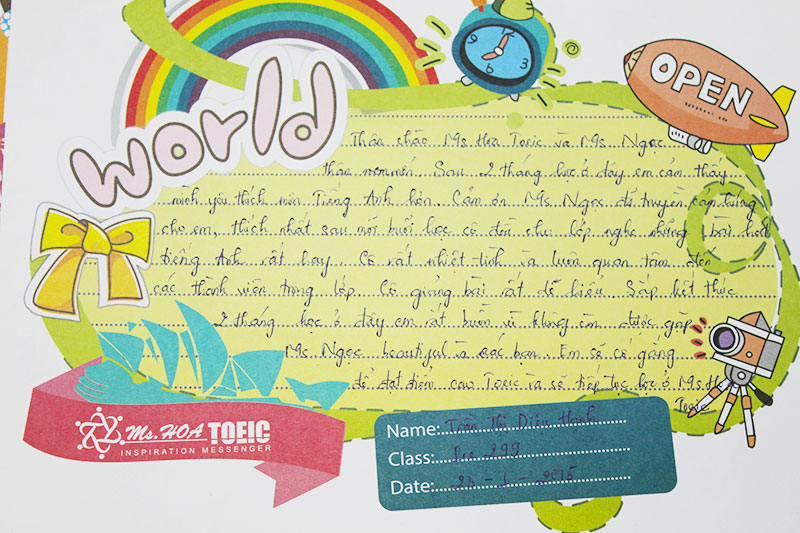 world
9 3 6
OPEN
Thân chào Ms Hoa Toeic và Ms Ngọc
thân mến. Sau 2 tháng học ở đây em cảm thấy
mình yêu thích môn Tiếng Anh hơn. Cảm ơn Ms Ngọc đã truyền cảm hứng
cho em, thích nhất sau mỗi buổi học cô đều cho lớp nghe những bài hát
tiếng Anh rất hay. Cô rất nhiệt tình và luôn quan tâm đến
các thành viên trong lớp. Cô giảng bài rất dễ hiểu. Sắp kết thúc
2 tháng học ở đây em rất buồn vì không còn được gặp
Ms Ngọc beautiful và các bạn. Em sẽ cố gắng
để đạt điểm cao Toeic và sẽ tiếp tục học ở Ms Hoa
Toeic
Ms. HOA TOEIC
INSPIRATION MESSENGER
Name: Trần Thị Diệu Hạnh
Class: 299
Date: - 1 - 2015